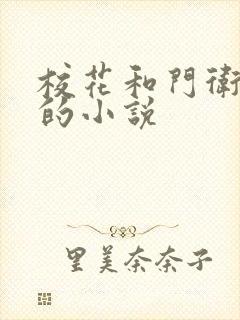 校花和門衛
的小説
里美奈奈子